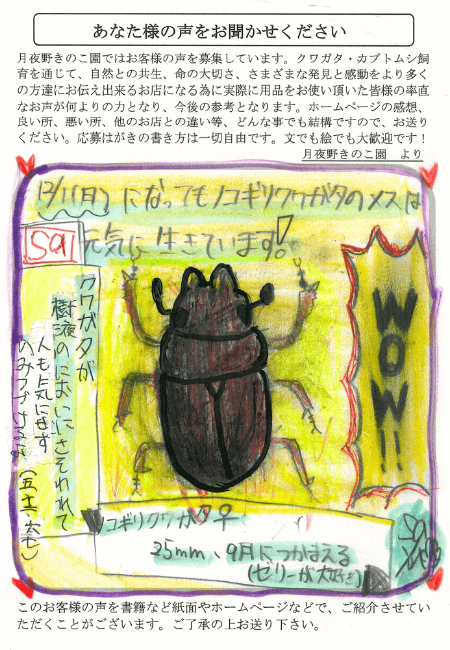 あなた様の声をお聞かせください
月夜野きのこ園ではお客様の声を募集しています。クワガタ・カブトムシ飼
育を通じて、自然との共生、命の大切さ、さまざまな発見と感動をより多く
の方達にお伝え出来るお店になる為に実際に用品をお使い頂いた皆様の率直
なお声が何よりの力となり、今後の参考となります。ホームページの感想、
良い所、悪い所、他のお店との違い等、どんな事でも結構ですので、お送り
ください。応募はがきの書き方は一切自由です。文でも絵でも大歓迎です！
月夜野きのこ園　より
12/11(月)になってもノコギリクワガタのメスは
元気に生きています!
クワガタが
樹液のにおいにさそわれて
人も気にせず
のみつづけるな
WOW!!
ノコギリクワガタ♀
35mm、9月につかまえる
(ゼリーが大好き)
このお客様の声を書籍など紙面やホームページなどで、ご紹介させてい
ただくことがございます。ご了承の上お送り下さい。